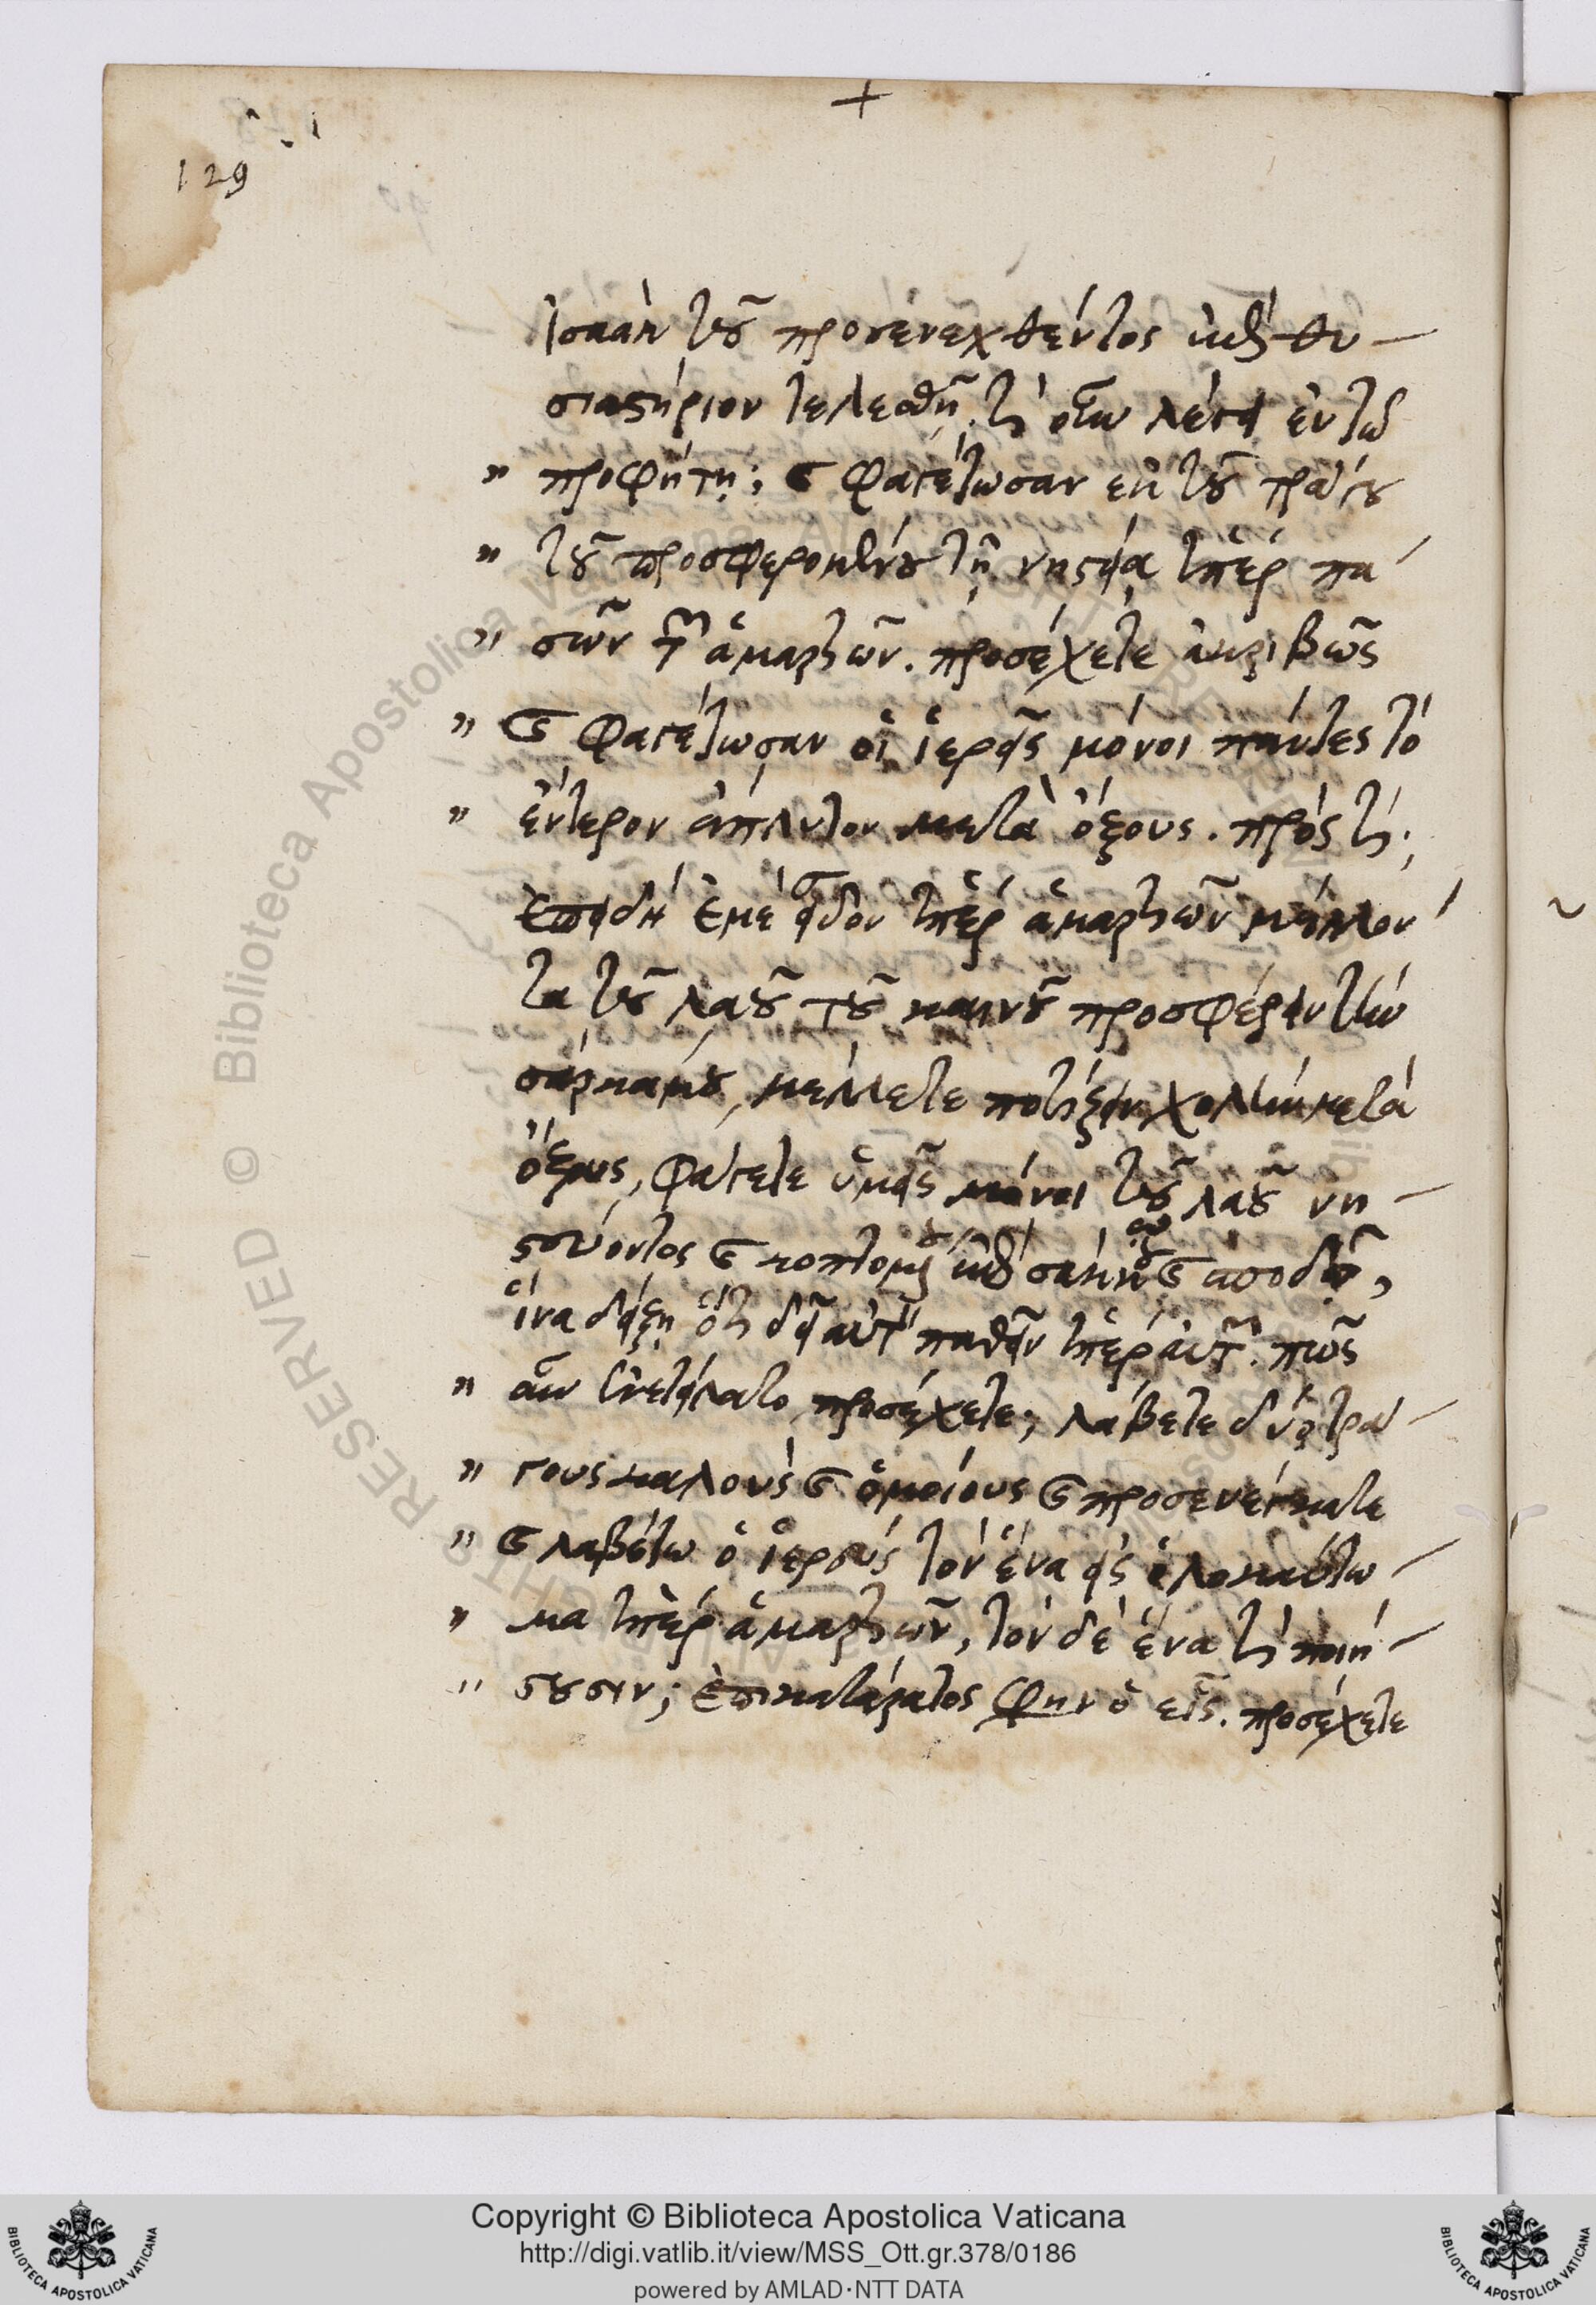 +
129
Ἰσαὰκ τοῦ προσενεχθέντος ἐπὶ τὸ θυ-
σιαστήριον τελεσθῇ. τί οὖν λέγει ἐν τῷ
" προφήτῃ; καὶ φαγέτωσαν ἐκ τοῦ τράγου
" τοῦ προσφερομένου τῇ νηστείᾳ ὑπὲρ πα
" σῶν τῶν ἁμαρτιῶν. προσέχετε ἀκριβῶς
" καὶ φαγέτωσαν οἱ ἱερεῖς μόνοι πάντες τὸ
" ἔντερον ἄπλυτον μετὰ ὄξους. πρὸς τί;
Ἐπειδὴ ἐμὲ εἶδον ὑπὲρ ἁμαρτιῶν μέλλον
τα τοῦ λαοῦ τοῦ καινοῦ προσφέρειν τὴν
σάρκα μου, μέλλετε ποτίζειν χολὴν μετὰ
ὄξους, φάγετε ὑμεῖς μόνοι τοῦ λαοῦ νη-
στεύοντος καὶ κοπτομένου ἐπὶ σάκκου καὶ σποδοῦ,
ἵνα δείξῃ ὅτι δεῖ αὐτὸν παθεῖν ὑπὲρ αὐτῶν. πῶς
" οὖν ἐνετείλατο προσέχετε; λάβετε δύο τρά-
" γους καλοὺς καὶ ὁμοίους καὶ προσενέγκατε
" καὶ λαβέτω ὁ ἱερεὺς τὸν ἕνα εἰς ὁλοκαύτω-
" μα ὑπὲρ ἁμαρτιῶν, τὸν δὲ ἕνα τί ποιή-
" σουσιν; ἐπικατάρατος φησὶν ὁ εἷς. προσέχετε
© Biblioteca Apostolica Vaticana
Copyright © Biblioteca Apostolica Vaticana
http://digi.vatlib.it/view/MSS_Ott.gr.378/0186
powered by AMLAD·NTT DATA
BIBLIOTECA APOSTOLICA VATICANA
BIBLIOTECA APOSTOLICA VATICANA